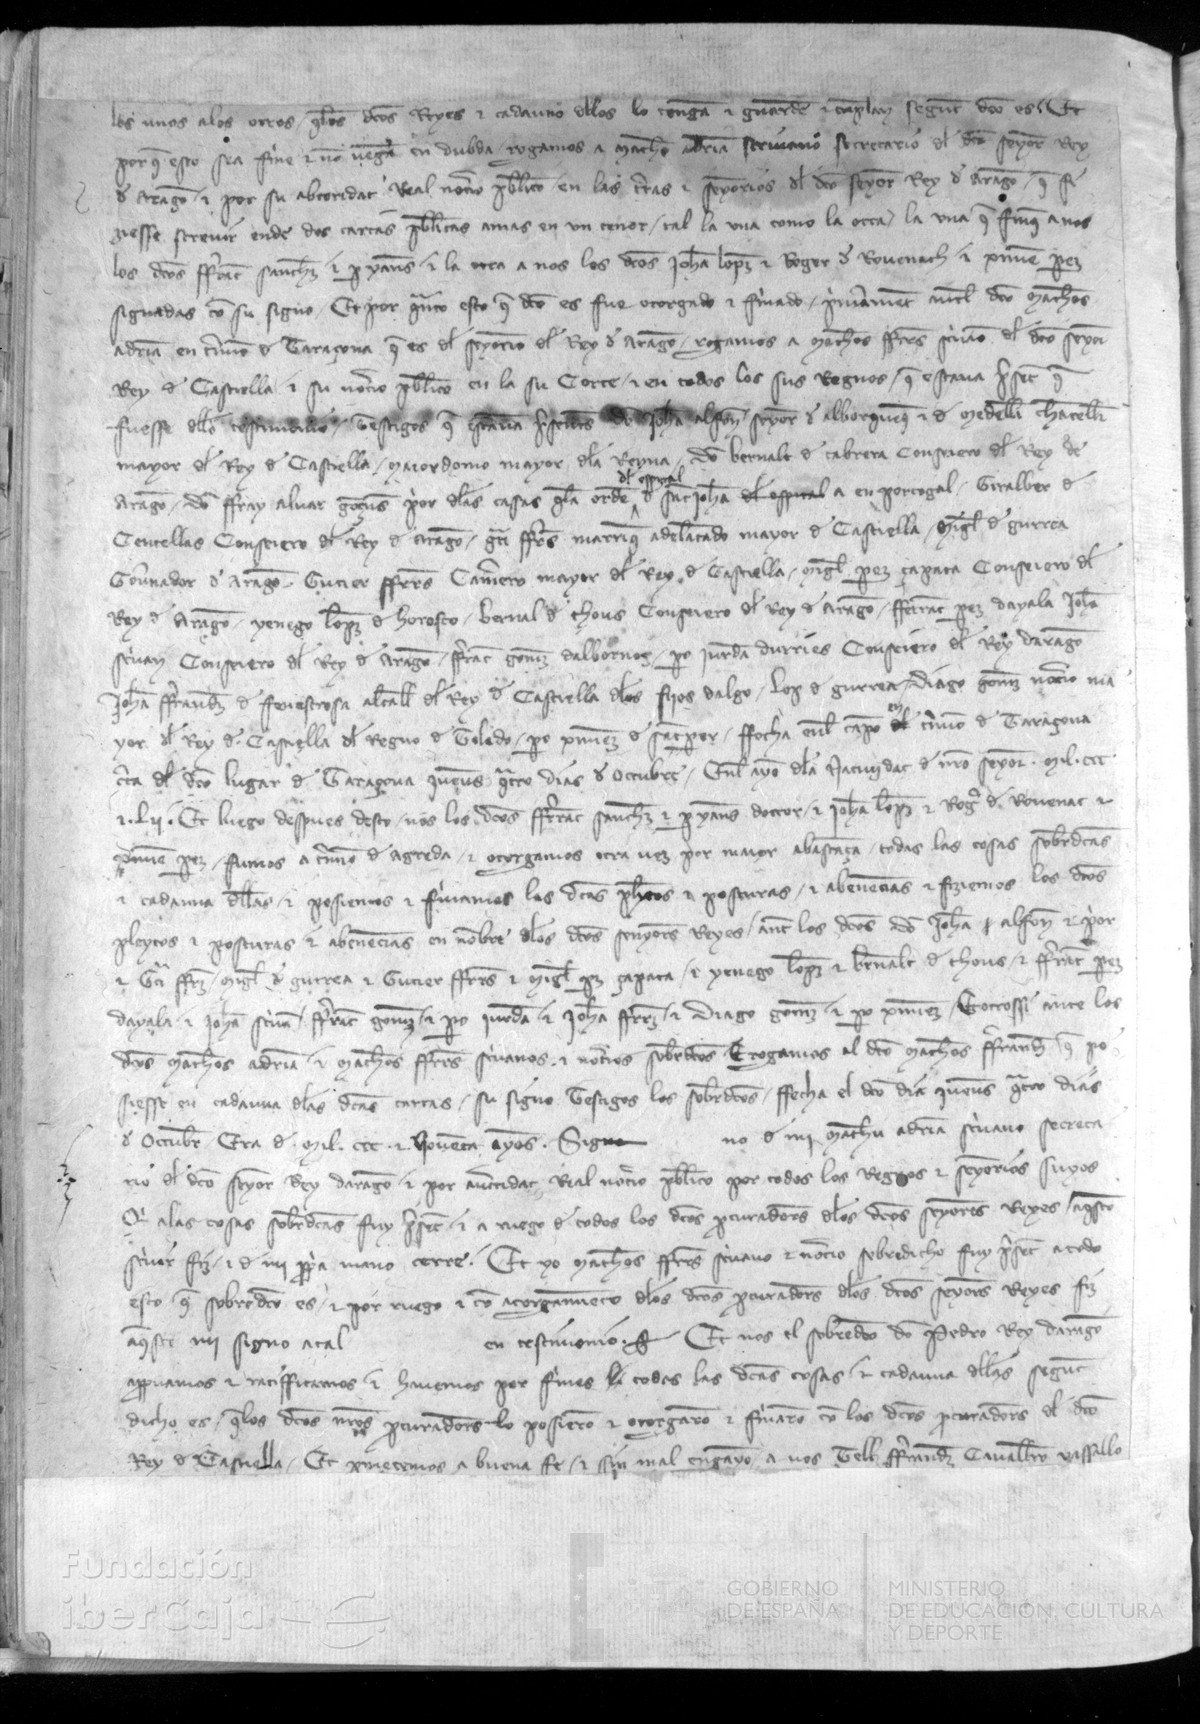 los unos alos otros / q̃los dc̃os Reyes ⁊ cadauno dllos lo tenga ⁊ guarde ⁊ cumplan segunt dcõ es / Et
porq̃ esto sea firme ⁊ no uenga en dubda rogamos a Matheo adrià scriuano secretario dl dcõ seyor Rey
d Aragõ / ⁊ por su abtoridat Real notr̃io pblico en las tr̃ras ⁊ seyorios dl dcõ seyor Rey d Aragõ / q̃ fi
ziesse screuir ende dos cartas pblicas amas en vn tenor / tal la vna como la otra / la vna q̃ finq̃ a nos
los dc̃os fferrãt sanchz ⁊ p yanes ⁊ la otra a nos los dc̃os Johã lopz ⁊ Roger d Rouenach ⁊ xime pez
signadas cõ su signo / Et por quãto esto q̃ dcõ es fue otorgado ⁊ firmado / primeramet antel dcõ Matheos
adriã en tr̃mino d Taraçona q̃ es dl seyorio dl Rey d Aragõ / rogamos a Matheos fferrs scriuano dl dcõ seyor
Rey d Castiella / ⁊ su notr̃io pblico en la su Corte / ⁊ en todos los sus Regnos / q̃ estaua p̃set q̃
fuesse dllo testimonio / Testigos q̃ estauã p̃sentes dõ Johã alfon seyor d alborquerq̃ ⁊ d Medelli chãceller
mayor dl Rey d Castiella / maiordomo mayor dla Reyna / dõ bernalt d cabrera Conseiero dl Rey de
Aragõ / dõ ffray aluar gõçaues prior dlas casas q̃ la ordẽ dl espital d sãt johã dl ospital a en portogal / Giralber d
Centellas Conseiero dl Rey d Aragõ / gci fferrs manriq̃ adelãtado mayor d Castiella / Migl d gurrea
Gouernador d Aragõ / Gutier fferrs Camrero mayor dl Rey d Castiella / migl perez çapata Conseiero dl
Rey d Aragõ / yenego lopz d horosco / bernal d thous Conseiero dl Rey d Aragõ / fferrãt perz dayala Johã
scriuan Conseiero dl Rey d Aragõ / ffrãt gomz dalbornoz / po iurdã durries Conseiero dl Rey daragõ
Johã ffrrandz d fenestrosa alcall dl Rey d Castiella dlos fijos dalgo / lop d gurrea / Diago gomz notr̃io ma
yor dl Rey d Castiella dl Regno d Toledo / po ximenz d sãt per / ffecha enl campo en tr̃mino d Taraçona
cerca dl dcõ lugar d Taraçona iueues quatro dias d Octubre / Enl ayo dla Natiuidat d nr̃o seyor Mil CCC
⁊ . L ij . Et luego despues desto / nos los dc̃os fferrãt sanchz ⁊ p yanes doctor / ⁊ Johã lopz ⁊ Rogr̃ d Rouenac ⁊
xime pez / fuimos a tr̃mino d Agreda / ⁊ otorgamos otra uez por maior abastãça / todas las cosas sobrdcãs
⁊ cadauna dllas / ⁊ posiemos ⁊ firmamos las dcãs pleytos ⁊ posturas / ⁊ abenecias ⁊ fiziemos los dcõs
pleytos ⁊ posturas ⁊ abenecias en nõbre dlos dcõs senyors Reyes / ant los dcõs dõ Johã alfon ⁊ prior
⁊ Gci ffrz / Migl d gurrea ⁊ Gutier fferrs ⁊ Migl pz çapata / ⁊ yenego lopz ⁊ bernalt d thous / ⁊ ffrãt pez
dayala ⁊ Johã scriuã / ffrãt gomz ⁊ po iurdã ⁊ Johã fferrz ⁊ Diago gomz ⁊ po ximenz / Et otrossi ante los
dcõs Matheos adriã ⁊ Matheos fferrs scriuanos ⁊ notr̃ios sobrdcõs Et rogamos al dcõ Matheos ffrrandz q̃ po
siesse en cadauna dlas dcãs cartas / su signo Testigos los sobrdcõs / ffecha el dcõ dia iueues quatro dias
d Octubr̃ Era d Mil . CCC . ⁊ Nouenta ayos . Sig no d mi Matheu adriã scriuano secreta
rio dl dcõ seyor Rey daragõ ⁊ por auctoridat Rial notr̃io pblico por todos los Regnos ⁊ seyorios suyos
Qi alas cosas sobrdcãs fuy p̃set ⁊ a ruego d todos los dcõs pcuradors dlos dcõs seyors Reyes / aq̃sto
scriuir fiz / ⁊ d mi ppia mano cerre . Et yo Matheos fferrs scriuano ⁊ notr̃io sobredicho fuy p̃set a todo
esto q̃ sobredcõ es / ⁊ por ruego ⁊ cõ atorgamieto dlos dcõs pcuradors dlos dcõs seyors Reyes fiz
aq̃ste mi signo atal en testimonio . Et nos el sobredcõ dõ Pedro Rey daragõ
approuamos ⁊ ratifficamos ⁊ hauemos por firmes todas las dcãs cosas / ⁊ cadauna dllas segunt
dicho es / q̃ los dcõs nr̃os pcuradors lo posierõ ⁊ otorgarõ ⁊ firmarõ cõ los dcõs pcuradors dl dcõ
Rey d Castiella / Et pmetemos a buena fe / ⁊ sin mal engayo / a uos Tell ffrrandz Cauallero uassallo
Fundación
iberCaja
GOBIERNO
DE ESPAÑA
MINISTERIO
DE EDUCACIÓN, CULTURA
Y DEPORTE